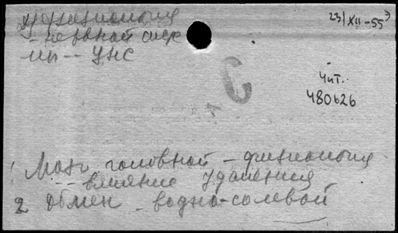 физиология
23/XII-55
- нервной сис
мы -- ЦНС
Чит.
480626
1 Мозг головной - физиология
-- влияние удаления
2 Обмен водно-солевой